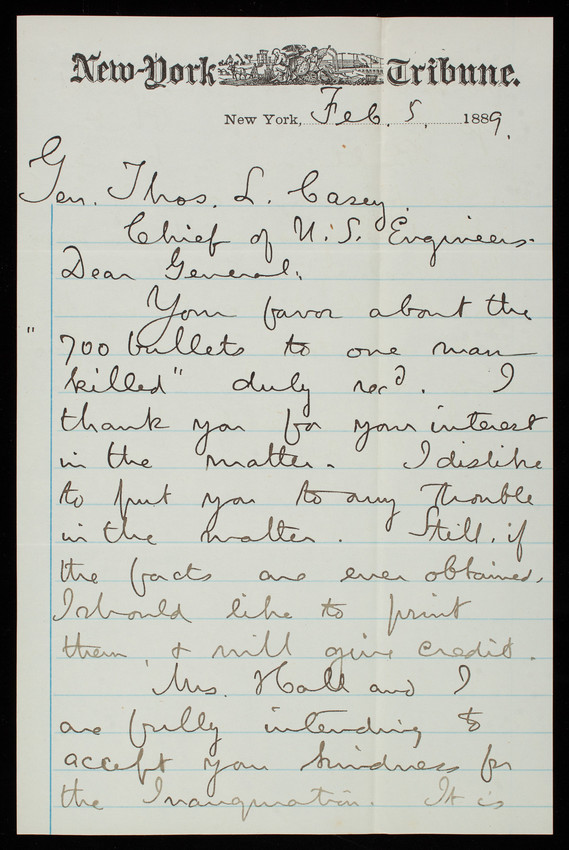 New-York Tribune.
New York, Feb. 5, 1889.
Gen. Thos. L. Casey,
Chief of U.S. Engineers.
Dear General:
Your favor about the
"700 bullets to one man
killed" duly recd. I
thank you for your interest
in the matter. I dislike
to put you to any trouble
in the matter. Still, if
the facts are ever obtained,
I should like to print
them, & will give credit.
Mrs. Hall and I
are fully intending to
accept your kindness for
the Inauguration. It is